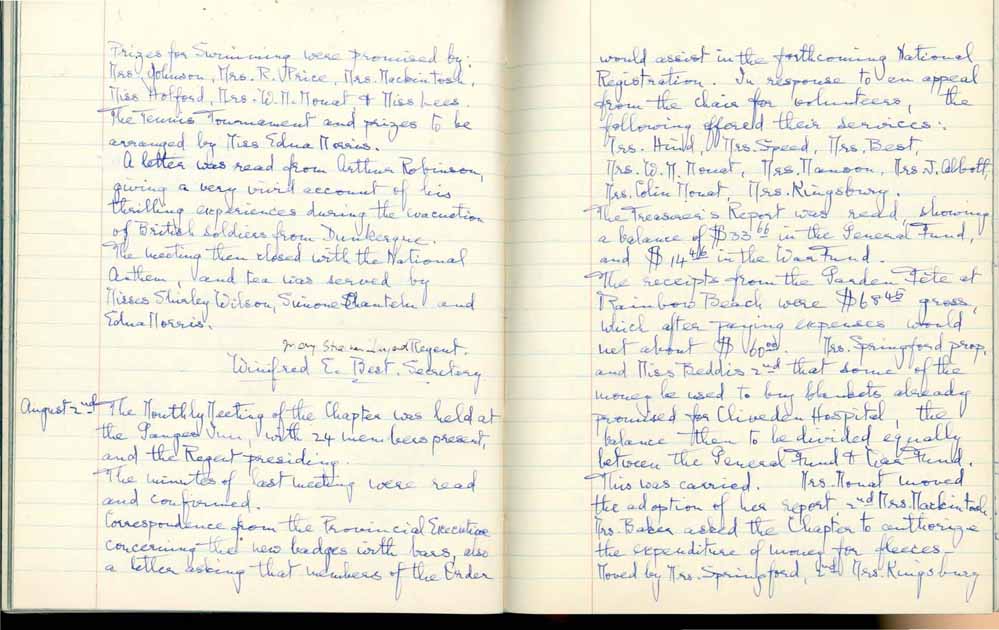 Prizes for Swimming were promised by:
Mrs. Johnson, Mrs. R. Price, Mrs. Mackintosh,
Miss Holford, Mrs. W. M. Mouat & Miss Lees.
The Tennis Tournament and prizes to be
arranged by Miss Edna Morris.
A letter was read from Arthur Robinson,
giving a very vivid account of his
thrilling experiences during the evacuation
of British soldiers from Dunkerque.
The meeting then closed with the National
Anthem, and tea was served by
Misses Shirley Wilson, Simone Chantelu and
Edna Morris.
Regent.
Winifred E. Best. Secretary
August 2nd The Monthly Meeting of the Chapter was held at
the Ganges Inn, with 24 members present,
and the Regent presiding.
The minutes of last meeting were read
and confirmed.
Correspondence from the Provincial Executive
concerning the new badges with bars, also
a letter asking that members of the Order
would assist in the forthcoming National
Registration. In response to an appeal
from the chair for volunteers, the
following offered their services:
Mrs. Hind, Mrs. Speed, Mrs. Best,
Mrs. W. M. Mouat, Mrs. Manson, Mrs. J. Abbott,
Mrs. Colin Mouat, Mrs. Kingsbury.
The Treasurer's Report was read, showing
a balance of $33 66 in the General Fund,
and $14 46 in the War Fund.
The receipts from the Garden Fête at
Rainbow Beach were $68 45 gross,
which after paying expenses would
net about $60 00. Mrs. Springford prop.
and Miss Beddis 2nd that some of the
money be used to buy blankets already
promised for Cliveden Hospital, the
balance then to be divided equally
between the General Fund & War Fund.
This was carried. Mrs. Mouat moved
the adoption of her report, 2nd Mrs. Mackintosh.
Mrs. Baker asked the Chapter to authorize
the expenditure of money for fleeces -
Moved by Mrs. Springford, 2nd Mrs. Kingsbury